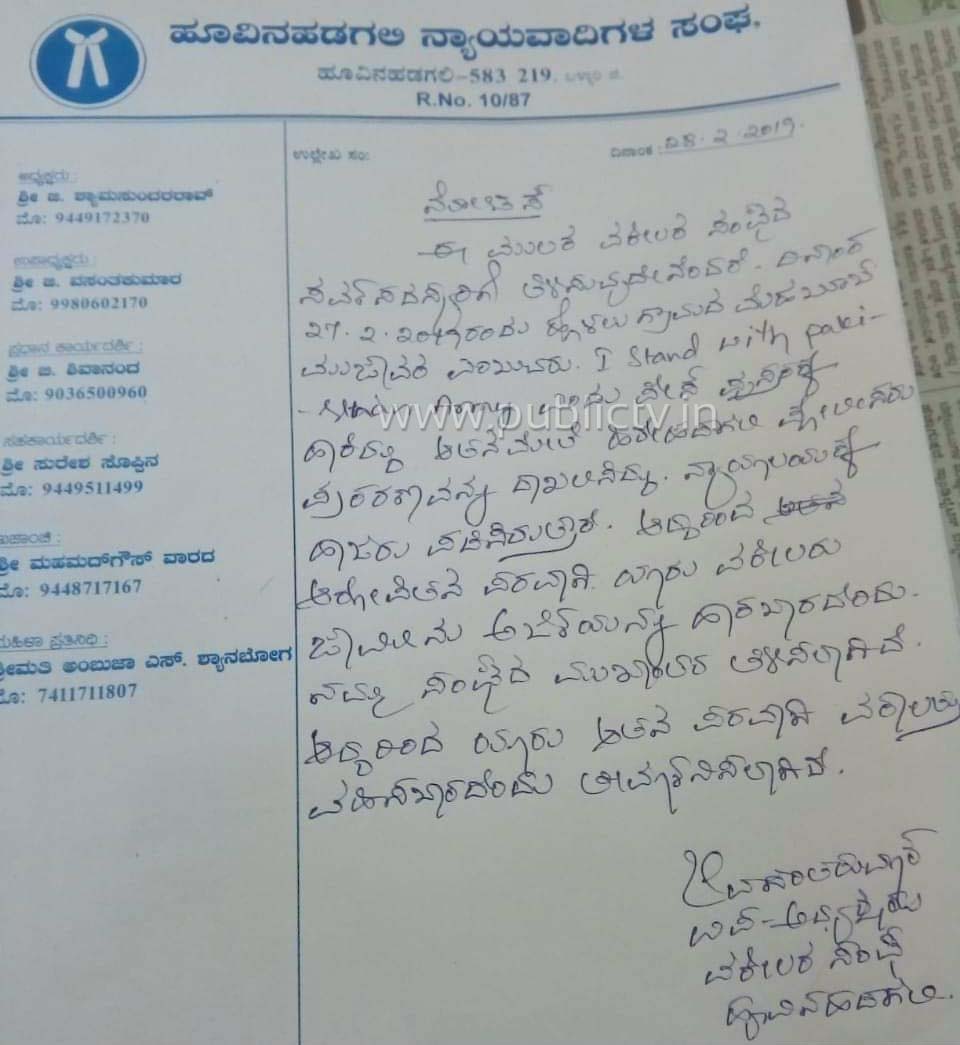 ಹೂವಿನಹಡಗಲಿ ನ್ಯಾಯವಾದಿಗಳ ಸಂಘ.
ಹೂವಿನಹಡಗಲಿ-583 219.
R.No. 10/87
ಉಲ್ಲೇಖ ಸಂ:
ದಿನಾಂಕ : 28.2.2019.
ಅಧ್ಯಕ್ಷರು :
ಶ್ರೀ ಜಿ. ಶ್ಯಾಮಸುಂದರರಾವ್
ಮೊ: 9449172370
ಉಪಾಧ್ಯಕ್ಷರು :
ಶ್ರೀ ಜಿ. ವಸಂತಕುಮಾರ
ಮೊ: 9980602170
ಪ್ರಧಾನ ಕಾರ್ಯದರ್ಶಿ :
ಶ್ರೀ ಜಿ. ಶಿವಾನಂದ
ಮೊ: 9036500960
ಸಹಕಾರ್ಯದರ್ಶಿ :
ಶ್ರೀ ಸುರೇಶ ಸೊಪ್ಪಿನ
ಮೊ: 9449511499
ಖಜಾಂಚಿ :
ಶ್ರೀ ಮಹಮದ್‌ಗೌಸ್ ವಾರದ
ಮೊ: 9448717167
ಮಹಿಳಾ ಪ್ರತಿನಿಧಿ :
ಶ್ರೀಮತಿ ಅಂಬುಜಾ ಎಸ್. ಶ್ಯಾನಬೋಗ
ಮೊ: 7411711807
ಈ ಮುಲಕ ವಕೀಲರ ಸಂಘದ
ಸರ್ವಸದಸ್ಯರಿಗೆ ತಿಳಿಸುವುದೇನೆಂದರೆ. ದಿನಾಂಕ
27.2.2019ರಂದು ಹೊಳಲು ಗ್ರಾಮದ ಮೆಹಬೂಬ್
I Stand with paki-
-stan Army ಎಂದು ದೇಶ
www.publictv.in
ಹಾಕಿದ್ದು ಆತನ ಮೇಲೆ ಹಿರೇಹಡಗಲಿ ಪೋಲೀಸರು
ಪ್ರಕರಣವನ್ನು ದಾಖಲಿಸಿದ್ದು. ನ್ಯಾಯಾಲಯಕ್ಕೆ
ಹಾಜರು ಪಡಿಸಿರುತ್ತಾರೆ. ಆದ್ದರಿಂದ
ಆರೋಪಿತನ ಪರವಾಗಿ ಯಾರು ವಕೀಲರು
ಜಾಮೀನು ಅರ್ಜಿಯನ್ನು ಹಾಕಬಾರದೆಂದು.
ನಮ್ಮ ಸಂಘದ ಮುಖಾಂತರ ತಿಳಿಸಲಾಗಿದೆ.
ಆದ್ದರಿಂದ ಯಾರು ಆತನ ಪರವಾಗಿ ವಕಾಲತ್ತು
ವಹಿಸಬಾರದೆಂದು ತೀರ್ಮಾನಿಸಲಾಗಿದೆ.
ವಕೀಲರ ಸಂಘ
ಹೂವಿನಹಡಗಲಿ.